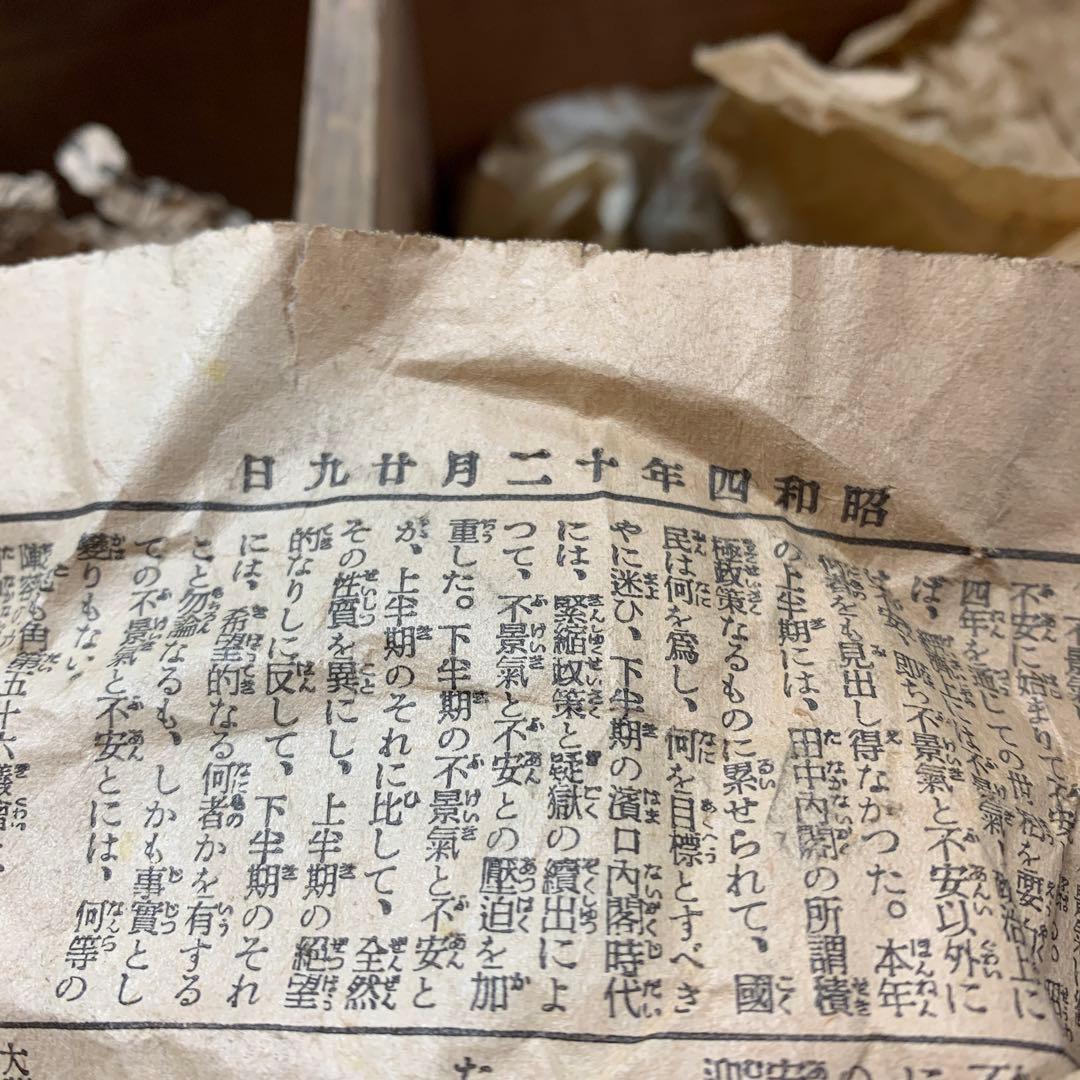 昭和四年十二月廿九日
不安に始まりて不安
四年を通じての世相を要約
ば、上には不景氣、政治上に
は不安、即ち不景氣と不安以外に
何物をも見出し得なかつた。本年
の上半期には、田中內閣の所謂積
極政策なるものに累せられて、國
民は何を爲し、何を目標とすべき
やに迷ひ、下半期の濱口內閣時代
には、緊縮政策と疑獄の續出によ
つて、不景氣と不安との壓迫を加
重した。下半期の不景氣と不安と
が、上半期のそれに比して、全然
その性質を異にし、上半期の絕望
的なりしに反して、下半期のそれ
には、希望的なる何者かを有する
こと勿論なるも、しかも事實とし
ての不景氣と不安とには、何等の
變りもない。
も角第五十六議會